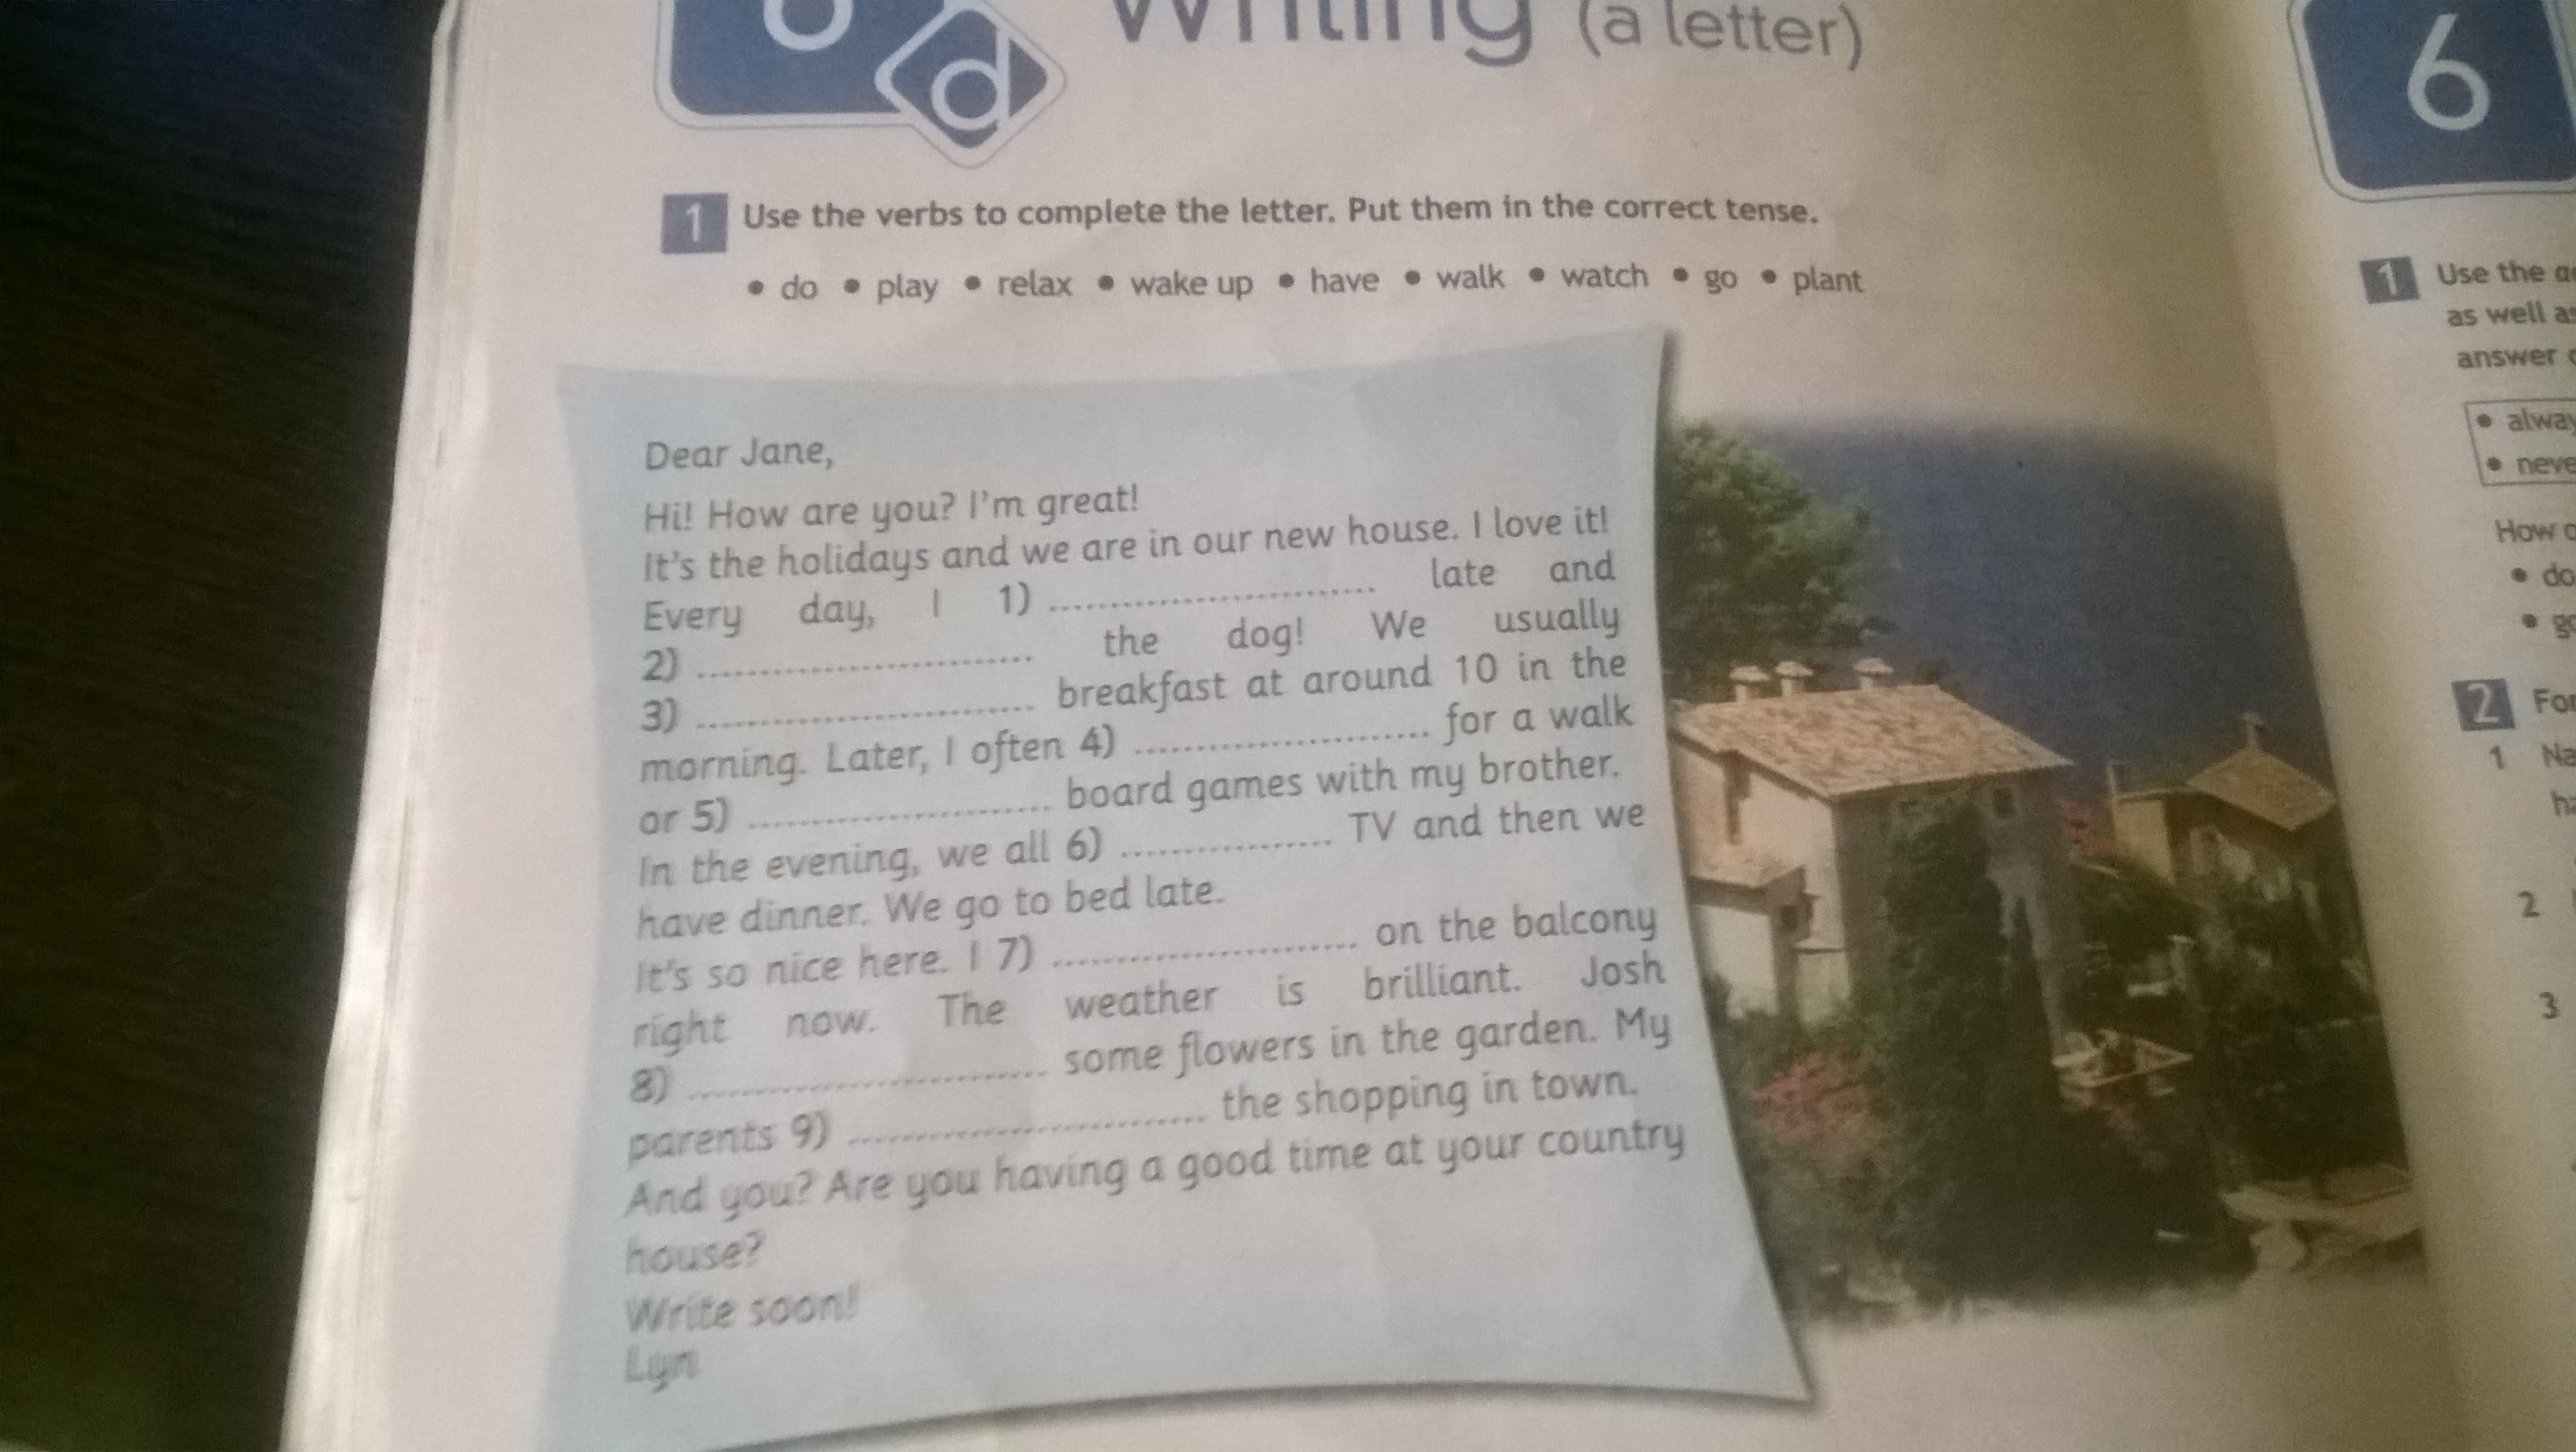 d
Writing (a letter)
6
1 Use the verbs to complete the letter. Put them in the correct tense.
• do • play • relax • wake up • have • walk • watch • go • plant
Dear Jane,
Hi! How are you? I'm great!
It's the holidays and we are in our new house. I love it!
Every day, I 1) .............................. late and
2) .............................. the dog! We usually
3) .............................. breakfast at around 10 in the
morning. Later, I often 4) .............................. for a walk
or 5) .............................. board games with my brother.
In the evening, we all 6) .................... TV and then we
have dinner. We go to bed late.
It's so nice here. I 7) .............................. on the balcony
right now. The weather is brilliant. Josh
8) .............................. some flowers in the garden. My
parents 9) .............................. the shopping in town.
And you? Are you having a good time at your country
house?
Write soon!
Lyn
1 Use the
as well
answer
•
•
How
• do
•
2
1
2
3